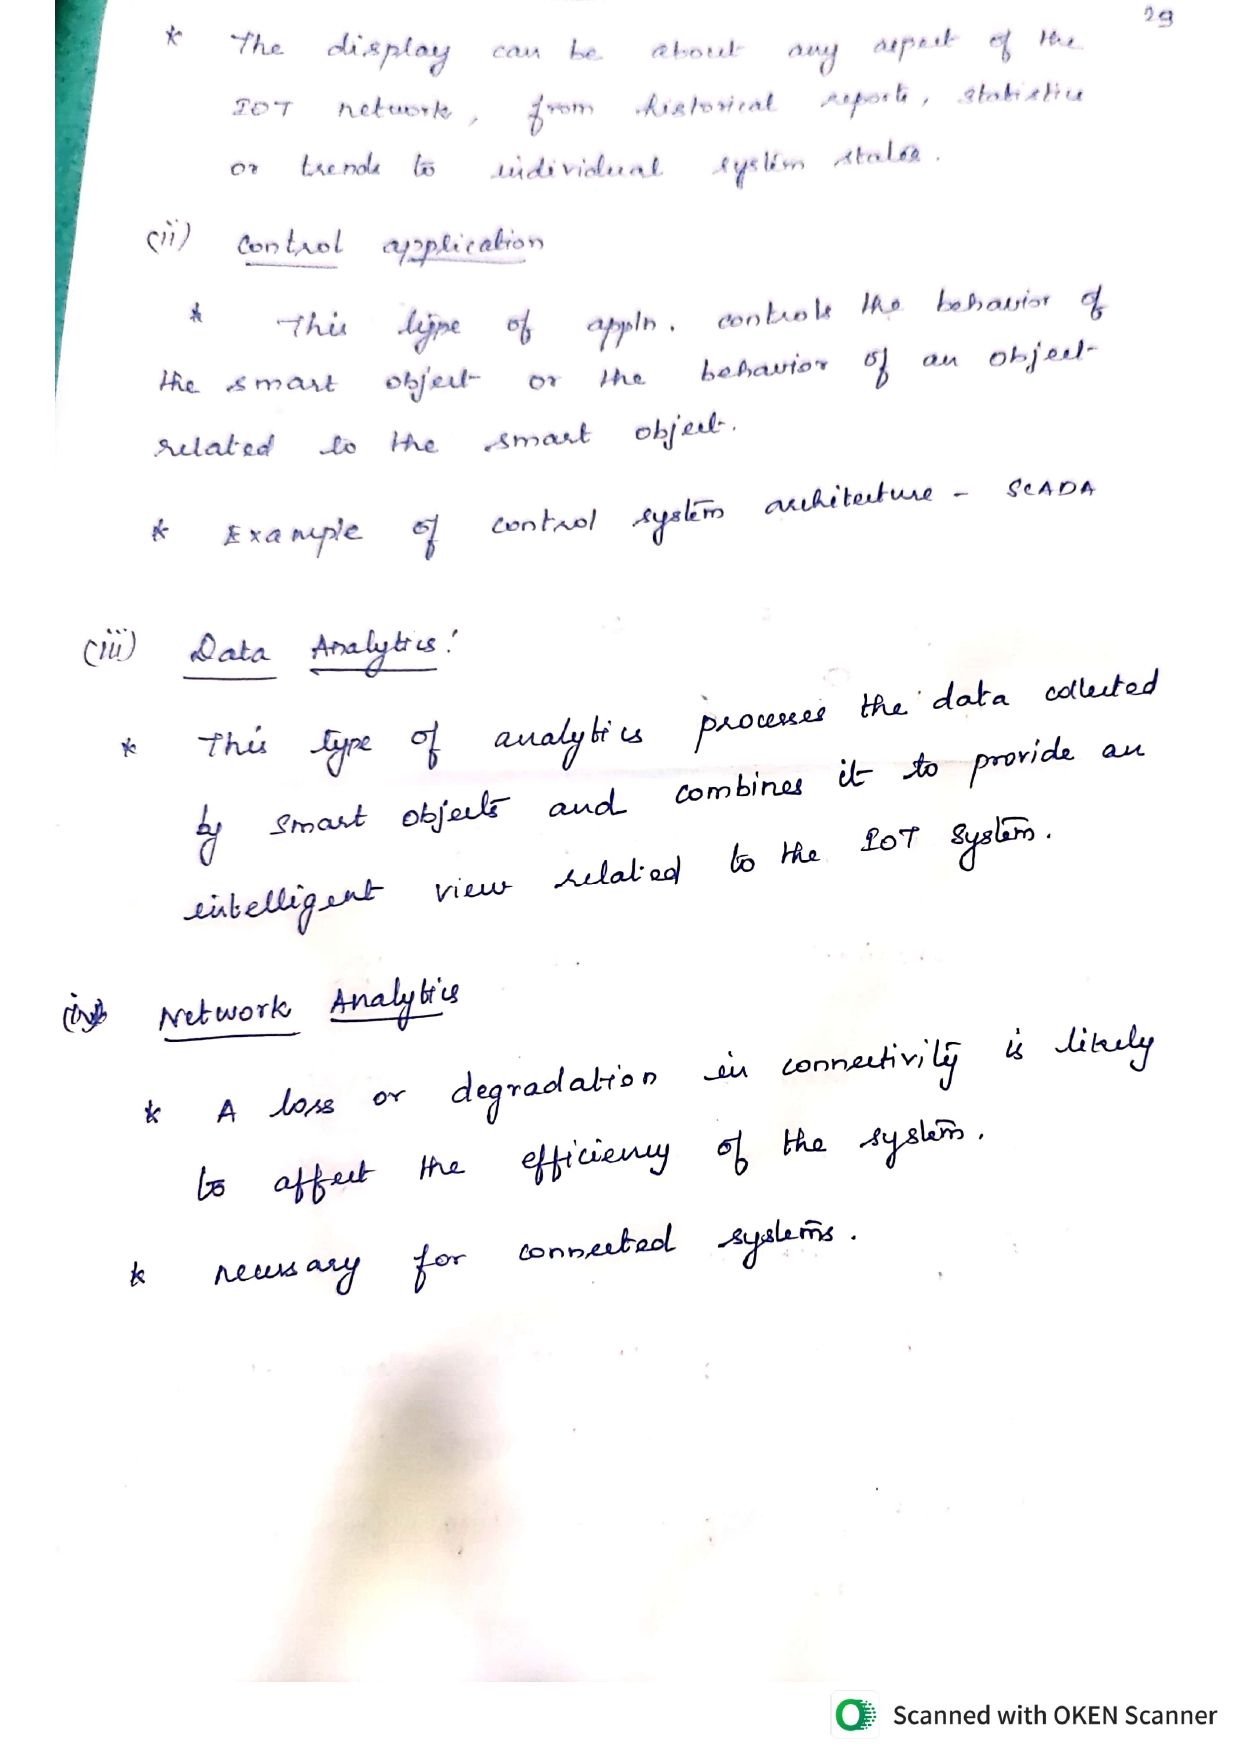 29
* The display can be about any aspect of the
IOT network, from historical reports, statistics
or trends to individual system states.
(ii) Control application
* This type of appln. controls the behavior of
the smart object or the behavior of an object
related to the smart object.
* Example of control system architecture - SCADA
(iii) Data Analytics:
* This type of analytics processes the data collected
by smart objects and combines it to provide an
intelligent view related to the IOT system.
(iv) Network Analytics
* A loss or degradation in connectivity is likely
to affect the efficiency of the system.
* necessary for connected systems.
Scanned with OKEN Scanner